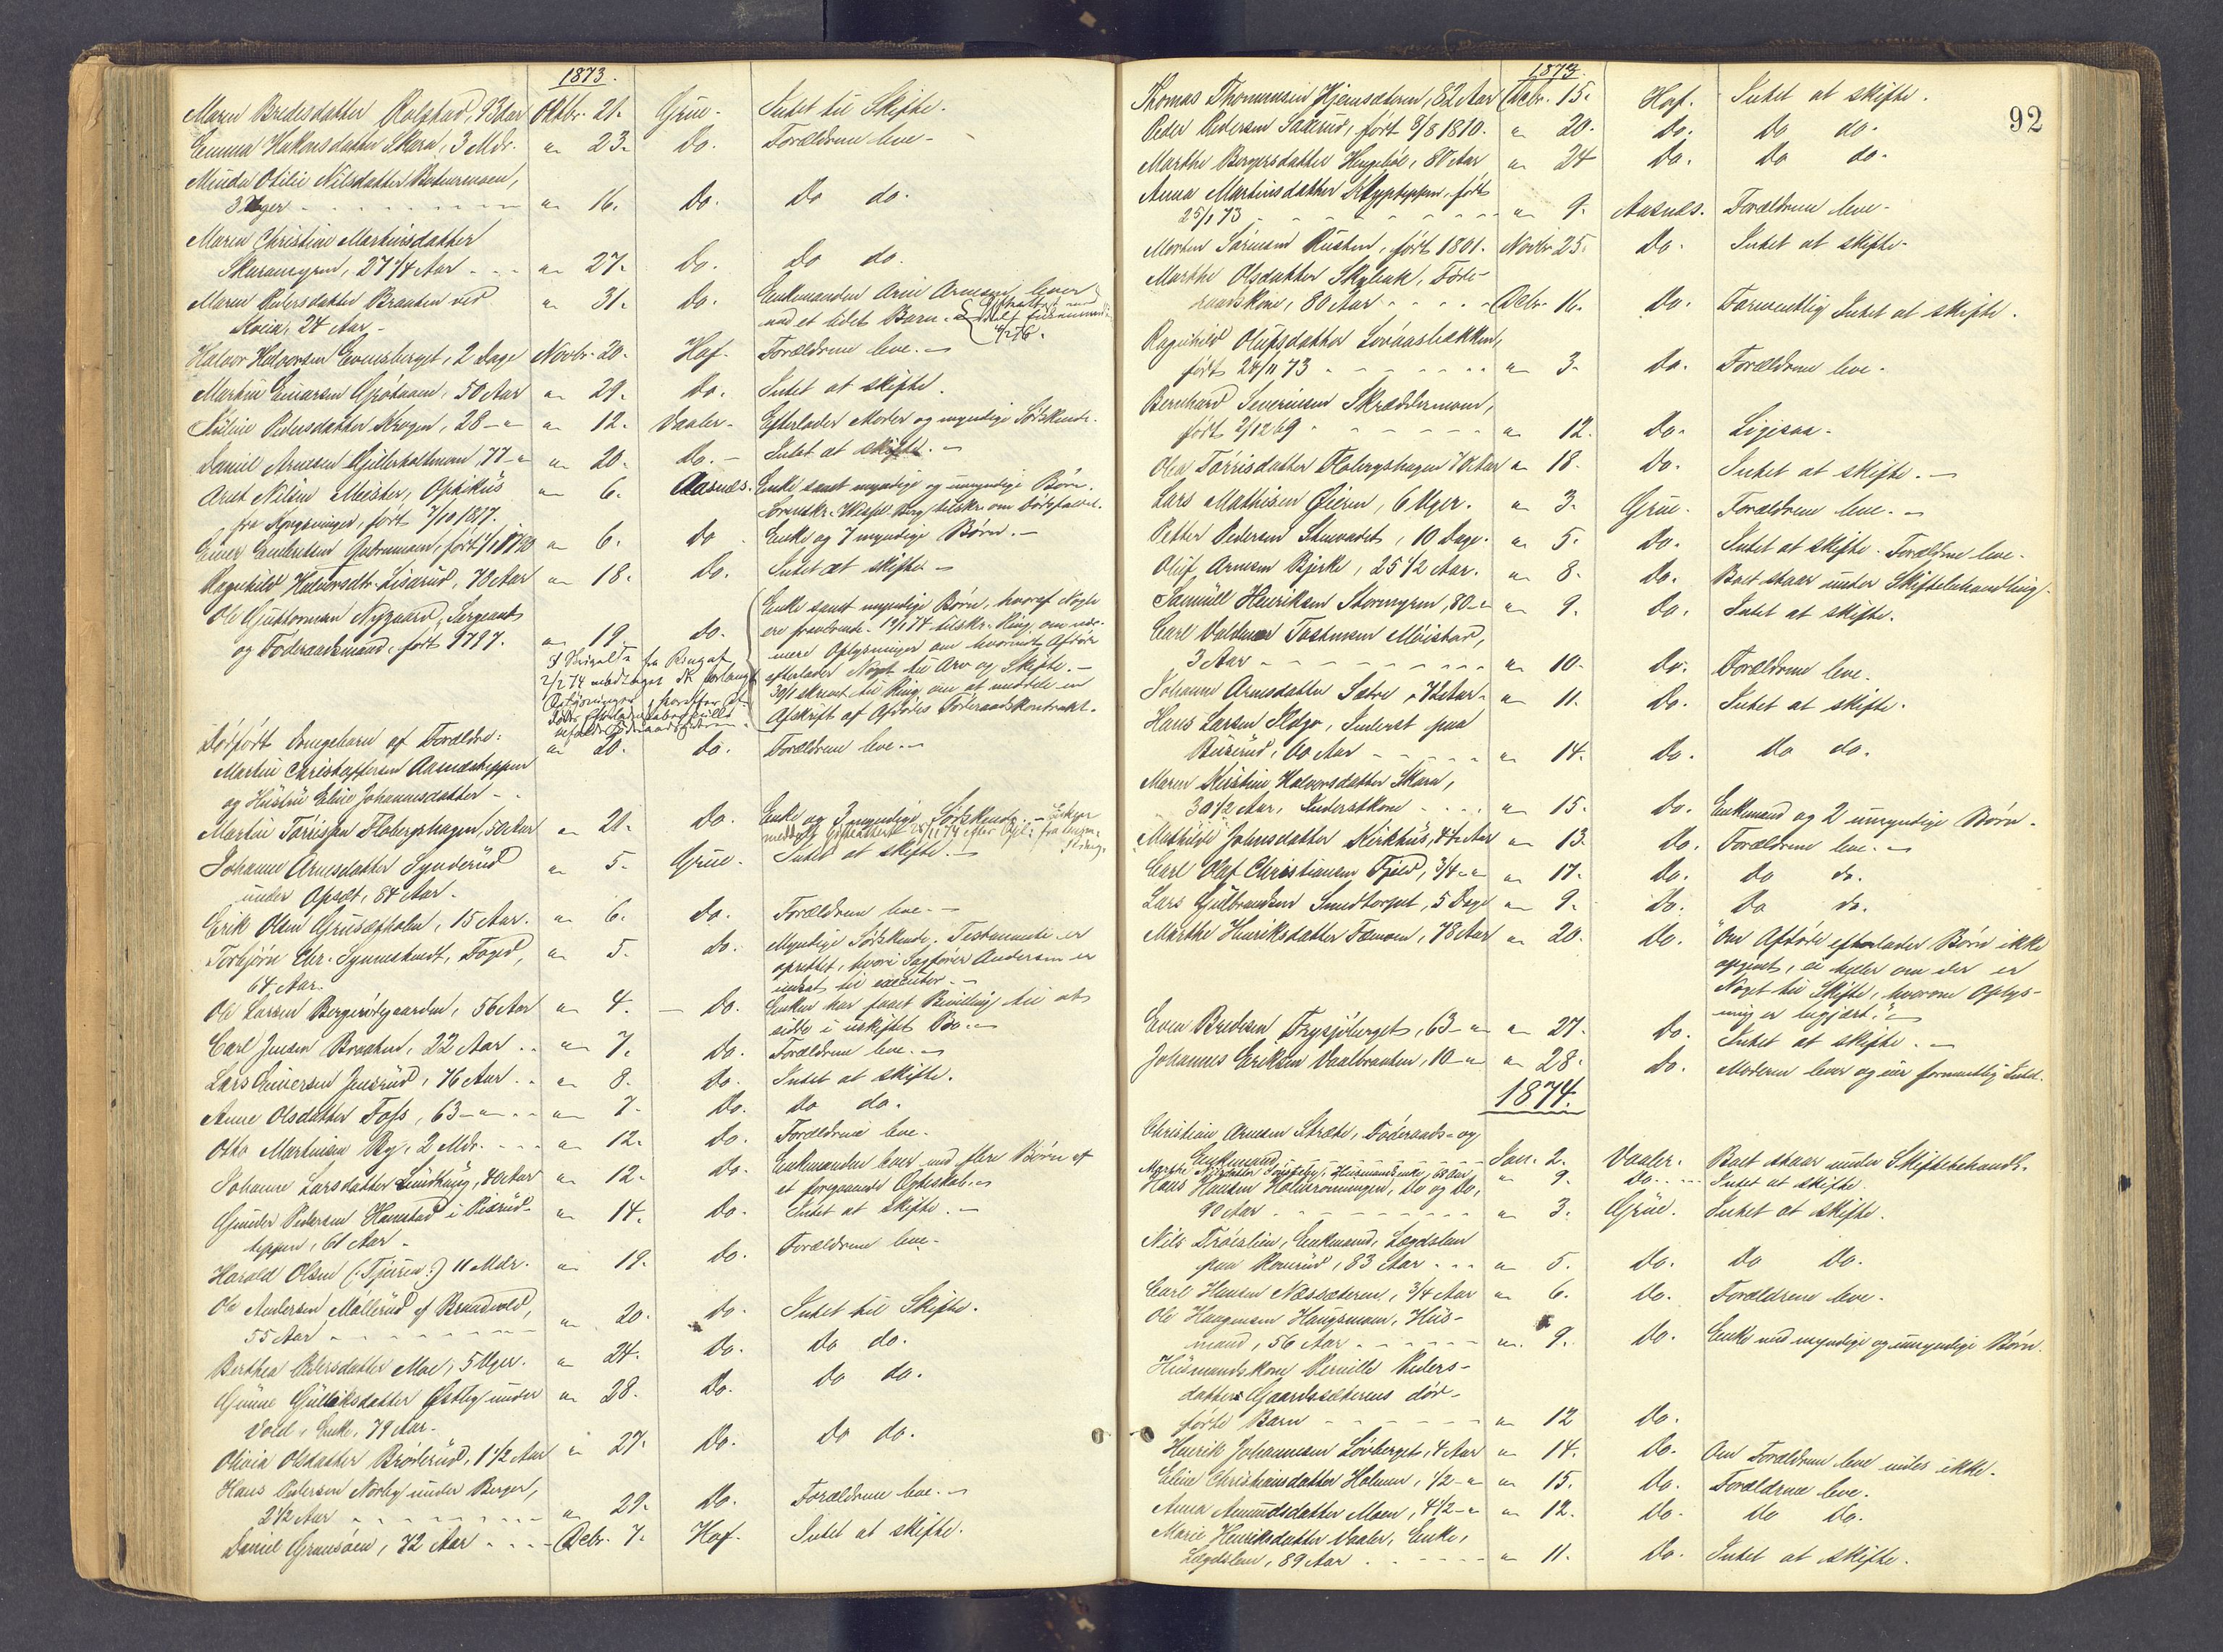 1873.
Maren Bredesdatter Rolstad, 93 Aar Oktbr. 21. Grue. Intet til Skifte.
Emma Hakonsdatter Skara, 3 Mdr. " 23. Do. Forældrene leve.
Minda Otilie Nilsdatter
3 Uger " 16. Do. Do do.
Maren Christine Martinsdatter
Skaramyren, 27 1/4 Aar " 27. Do. Do do.
Maren Pedersdatter Braaten ved " 31. Do. Enkemanden Arne Arnesen lever
24 Aar. med et lidet Barn.
4/2 76.
Halvor Halvorsen Evensberget, 2 Dage Novbr. 20. Hof. Forældrene leve.
Martin Einarsen 50 Aar " 29. Do. Intet at skifte.
Pedersdatter Krogen, 28 " " 12. Vaaler. Efterlader Moder og myndige Sødskende.
Daniel Arnesen 77 " " 20. Do. Intet at skifte.
Arnt Nilsen Meister, Optikus " 6. Aasnes. Enke samt myndige og umyndige Børn.
fra Kongsvinger, født 7/10 1817. om Dødsfaldet.
Einer Embretsen født " 6. Do Enke og 7 myndige Børn.
Ragnhild Halvorsdtr. Lisarud, 70 Aar " 18. Do. Intet at skifte
Ole Guttormsen Nygaard, Sergeant
og Føderaadsmand, født 1797. " 19. Do.
Enke samt myndige Børn, hvoraf Nogle
ere fraværende. 19/1 74 tilskr. Ring om nær-
mere Oplysninger om hvorvidt Afdøde
efterlader Noget til Arv og Skifte.
30/1 skrevet til Ring om at meddele en
Afskrift af Afdødes Føderaadskontrakt.
fra Ring af
2/2 74 modtaget
Dødfødt Drengebarn af Forældre: " 20. do. Forældrene leve.
Martin Christoffersen Aasnesteppen
og Hustru Eline Johannesdatter
Martin Tørrissen Flobergshagen, 50 Aar " 21. Do. Enke og 3 myndige Sødskende.
Johanne Arnesdatter Synderud " 5. Grue. Intet at skifte.
under Opset, 84 Aar.
Erik Olsen 15 Aar. " 6. Do. Forældrene leve.
Torbjørn Chr. Synnestvedt, Foged, " 5. do. Myndige Sødskende. Testamente er
64 Aar. oprettet, hvori Sagfører Andersen er
indsat til executor.
Ole Larsen Bergerødegaarden, 56 Aar " 4. Do. Enken har faaet Bevilling til at
sidde i uskiftet Bo.
Carl Jensen Braaten, 22 Aar " 7. Do. Forældrene leve.
Lars Einersen Jusrud, 76 Aar. " 8. Do. Intet at skifte.
Anne Olsdatter Foss, 63 " " 7. Do. Do do.
Otto Martinsen Ry, 2 Mdr. " 12. Do. Forældrene leve.
Johanne Larsdatter Lundhaug, 40 Aar " 12. Do. Enkemanden lever med flere Børn af
et foregaaende Ægteskab.
Gunder Pedersen Hamstad i Risrud- " 14. Do. Intet at skifte.
teppen, 61 Aar.
Harald Olsen (: Tjuren :) 11 Mdr. " 19. Do. Forældrene leve.
Ole Andersen Møllerud af Brandvold,
55 Aar " 20. do. Intet til Skifte.
Berthea Pedersdatter Moe, 5 Uger. " 24. Do. Do do.
Gunne Gulliksdatter Østby under " 28. Do. Do do.
Vold, Enke, 79 Aar.
Olivia Olsdatter Brøderud, 1 1/2 Aar " 27. Do. Do do.
Hans Pedersen Nordby under Berger,
2 1/2 Aar " 29. Do. Forældrene leve.
Daniel Grønsøen, 72 Aar Decbr. 7. Hof. Intet at skifte.
92
1873.
Thomas Thomassen Hjemsæteren, 82 Aar Decbr. 15. Hof. Intet at skifte.
Peder Pedersen Saxerud, født 8/8 1810. " 20. Do. Do do.
Marthe Bergersdatter 80 Aar " 24 Do. Do do.
Anna Martinsdatter født
25/1 73 " 9. Aasnes. Forældrene leve.
Morten Sørensen Rusten, født 1801. Novbr. 25. Do. Intet at skifte.
Marthe Olsdatter Føde-
raadskone, 80 Aar Decbr. 16. Do. Formentlig Intet at skifte.
Ragnhild Olufsdatter Løvaasbakken,
født 26/11 73 " 3. Do. Forældrene leve.
Bernhard Severinsen Skræddermoen,
født 2/12 69 " 12. Do. Ligesaa.
Olea Tørrisdatter Flobergshagen 70 Aar " 18. Do. Intet at skifte.
Lars Mathisen Øieren, 6 Uger. " 3. Grue. Forældrene leve.
Petter Pedersen 10 Dage. " 5. Do. Intet at skifte. Forældrene leve.
Oluf Arnesen Bjerke, 25 1/2 Aar. " 8. Do. Boet staar under Skiftebehandling.
Samuel Henriksen Stormyren, 80 " " 9. Do. Intet at skifte.
Carl Valdemar
3 Aar " 10. Do. Forældrene leve.
Johanne Arnesdatter Sætre, 72 Aar. " 11. Do. Intet at skifte.
Hans Larsen Inderst paa
Buserud, 60 Aar " 14. Do. Do do.
Maren Kristine Halvorsdatter Skara,
30 1/2 Aar, Inderstkone " 15. Do. Enkemand og 2 umyndige Børn.
Mathilde Johnsdatter Kirkhus, 44 Aar " 13. Do. Forældrene leve.
Carl Olaf Christiansen Fjeld, 3/4 " " 17. Do. Do do.
Lars Gulbrandsen Smedtorpet, 5 Dage " 9. Do. Do do.
Marthe Henriksdatter 78 Aar " 20. Do. "Om Afdøde efterlader Børn ikke
opgivet, ei heller om der er
Noget til Skifte, hvorom Oplys-
ning er begjært."
Even Bredesen Frysjøberget, 63 " " 27. Do. Intet at skifte.
Johannes Eriksen Vaalbraaten, 10 " " 28. Do. Moderen lever og eier formentlig Intet.
1874.
Christian Arnesen Stræte, Føderaads- og
Enkemand Jan. 2. Vaaler. Boet staar under Skiftebehandl.
Marthe Husmandsenke, 68 Aar, " 9. Do. Intet at skifte.
Hans Hansen Do og Do,
90 Aar " 3. Grue. Intet at skifte.
Nils Enkemand, Lægdslem
paa 83 Aar " 5. Do. Do Do.
Carl Hansen Næssæteren, 3/4 Aar " 6. Do. Forældrene leve.
Ole Haagensen Haugsmoen, Hus-
mand, 56 Aar " 9. Do. Enke med myndige og umyndige Børn.
Husmandskone Pernille Peders-
datter Gaardssæterens død-
fødte Barn " 12 Do.
Henrik Johannesen Løvberget, 4 Aar " 14. Do. Om Forældrene leve vides ikke.
Eline Christiansdatter Holmen, 1/2 " " 15. Do. Forældrene leve.
Anna Amundsdatter Moen, 4 1/2 " " 12. Do. Do Do.
Marie Henriksdatter Vaaler, Enke,
Lægdslem, 89 Aar " 11. Do. Intet at skifte.